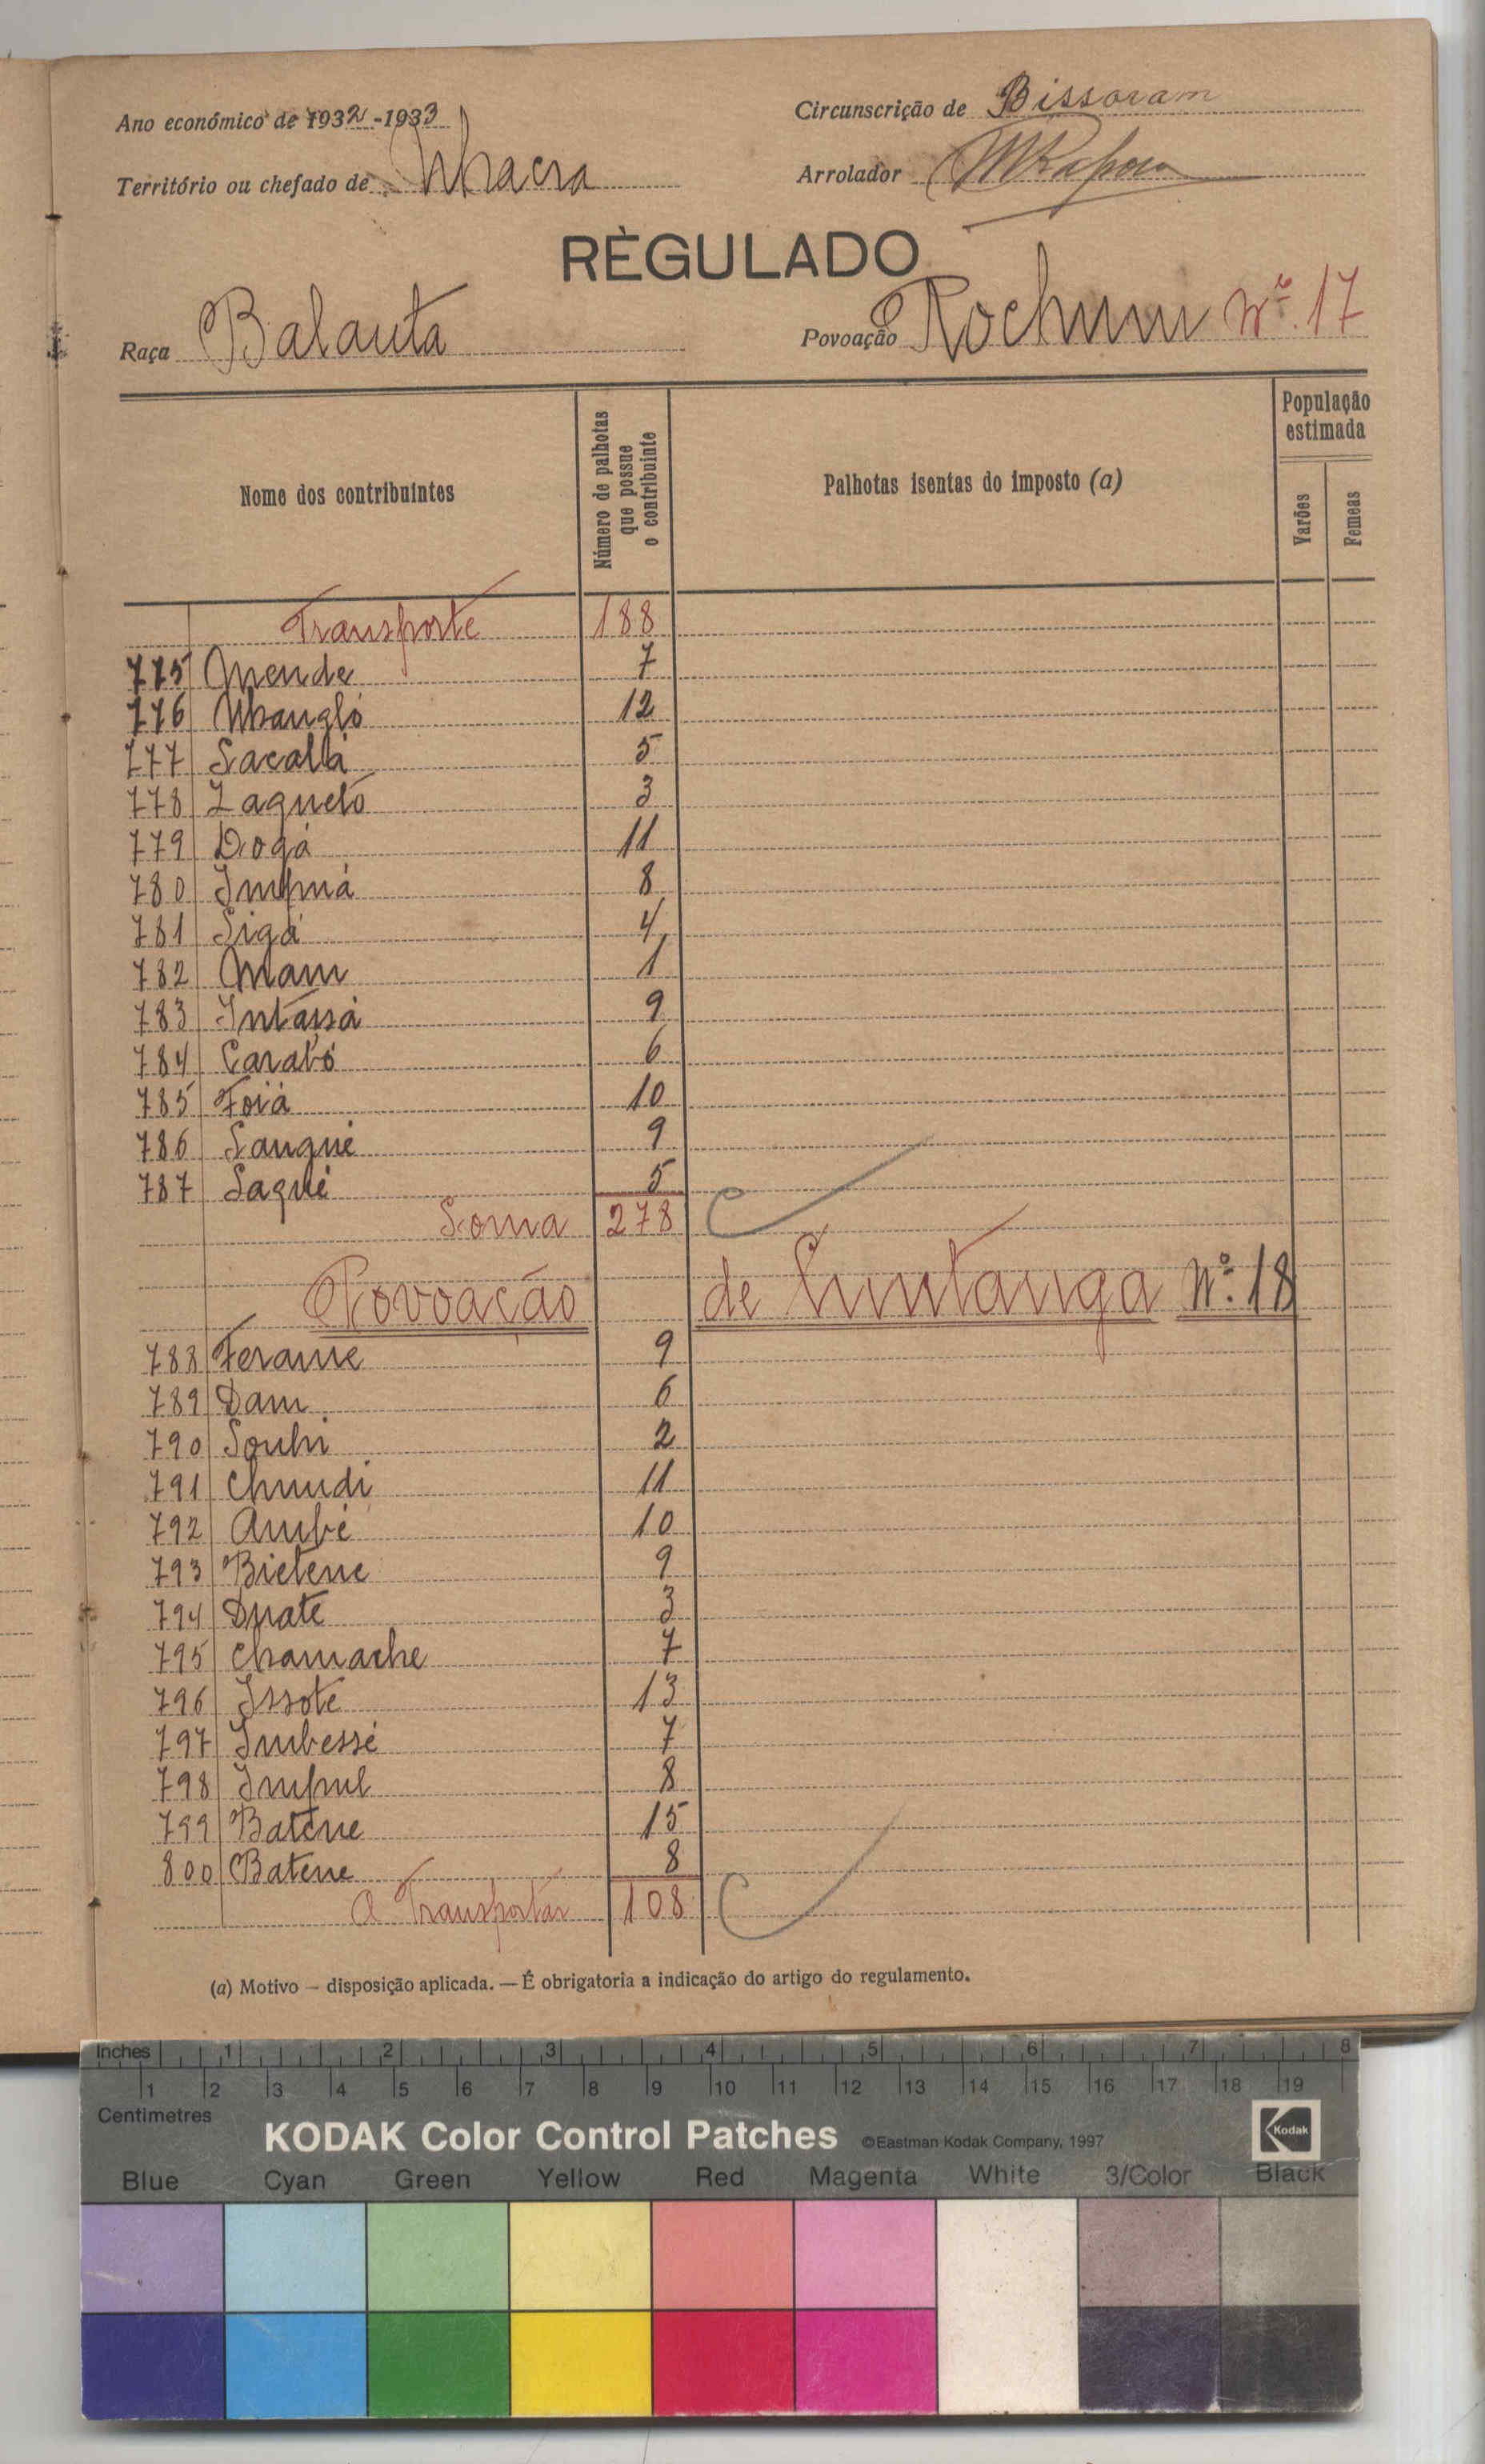 Ano económico de 1932-1933
Circunscrição de Bissoram
Território ou chefado de Nhacra
Arrolador
RÈGULADO
Raça Balanta
Povoação Rochum Nº. 17
Nome dos contribuintes
Número de palhotas que possue o contribuinte
Palhotas isentas do imposto (a)
População estimada
Varões
Femeas
Transporte 188
775 Mende 7
776 Nhangló 12
777 Sacallá 5
778 Zaquetó 3
779 Dogá 11
780 Impuá 8
781 Sigá 4
782 Mam 1
783 Intássá 9
784 Carabó 6
785 Foiá 10
786 Sangué 9
787 Saqué 5
Soma 278
Povoação de Cuntanga Nº. 18
788 Ferame 9
789 Dam 6
790 2
791 Chundi 11
792 Ambé 10
793 Bietene 9
794 Duate 3
795 Chamache 7
796 Issote 13
797 Imbessé 7
798 Impul 8
799 Batene 15
800 Batene 8
A Transportar 108
(a) Motivo — disposição aplicada. — É obrigatoria a indicação do artigo do regulamento.
Inches 1 2 3 4 5 6 7 8
1 2 3 4 5 6 7 8 9 10 11 12 13 14 15 16 17 18 19
Centimetres
KODAK Color Control Patches ©Eastman Kodak Company, 1997 Kodak
Blue Cyan Green Yellow Red Magenta White 3/Color Black